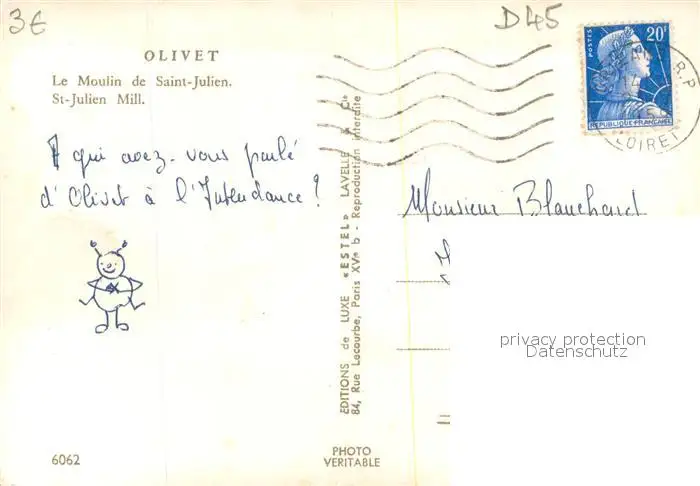 3€
D45
OLIVET
Le Moulin de Saint-Julien.
St-Julien Mill.
A qui avez-vous parlé
d'Olivet à l'Intendance ?
6062
EDITIONS de LUXE "ESTEL" LAVELLE & Cie
84, Rue Lecourbe, Paris XVe b - Reproduction interdite
PHOTO
VERITABLE
POSTES
20F
REPUBLIQUE FRANÇAISE
R.P
LOIRET
Monsieur Blanchard
privacy protection
Datenschutz